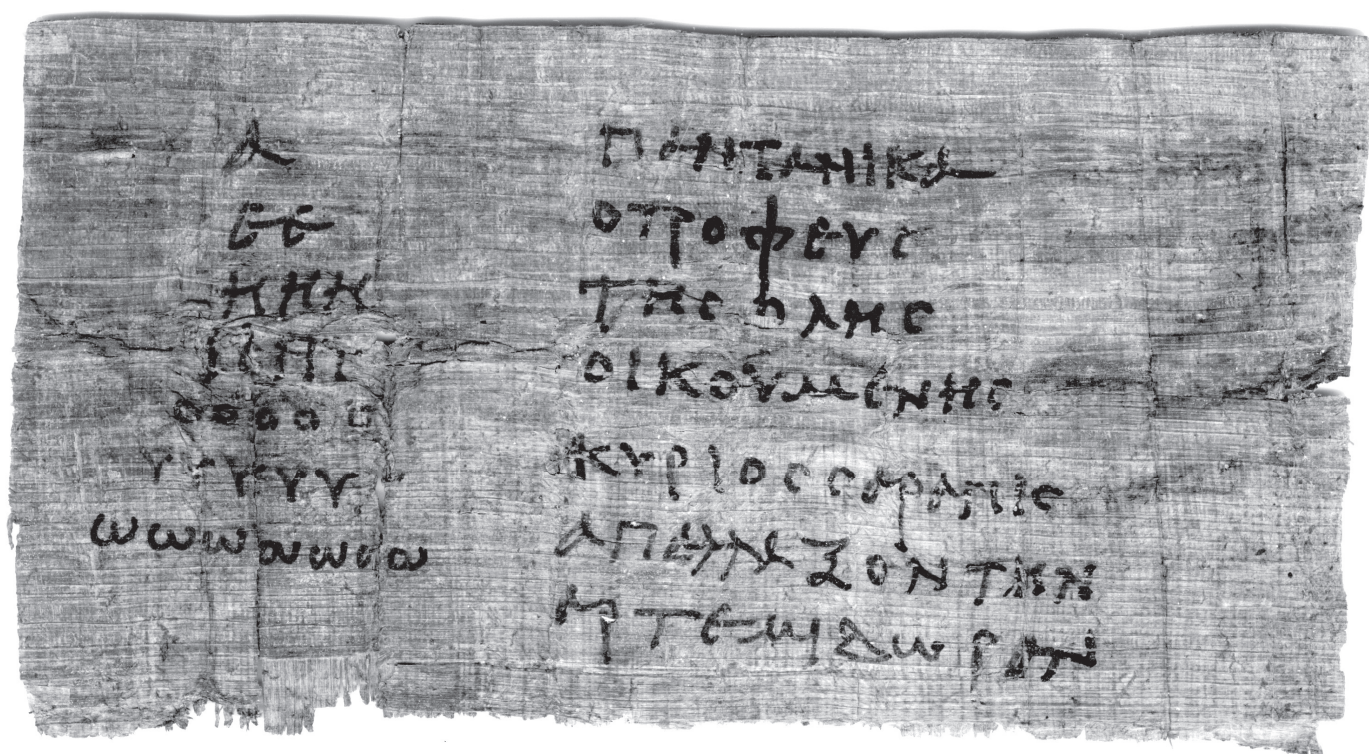 Α
ΕΕ
ΗΗΗ
ΙΙΙΙ
ΟΟΟΟΟ
ΥΥΥΥΥΥ
ωωωωωωω
ΠΑΝΤΑΝΙΚΑ
ΟΤΡΟΦΕΥϹ
ΤΗϹΟΛΗϹ
ΟΙΚΟΥΜΕΝΗϹ
ΚΥΡΙΟϹϹΑΡΑΠΙϹ
ΑΠΑΛΛΑΞΟΝΤΗΝ
ΑΡΤΕΜΙΔωΡΑΝ